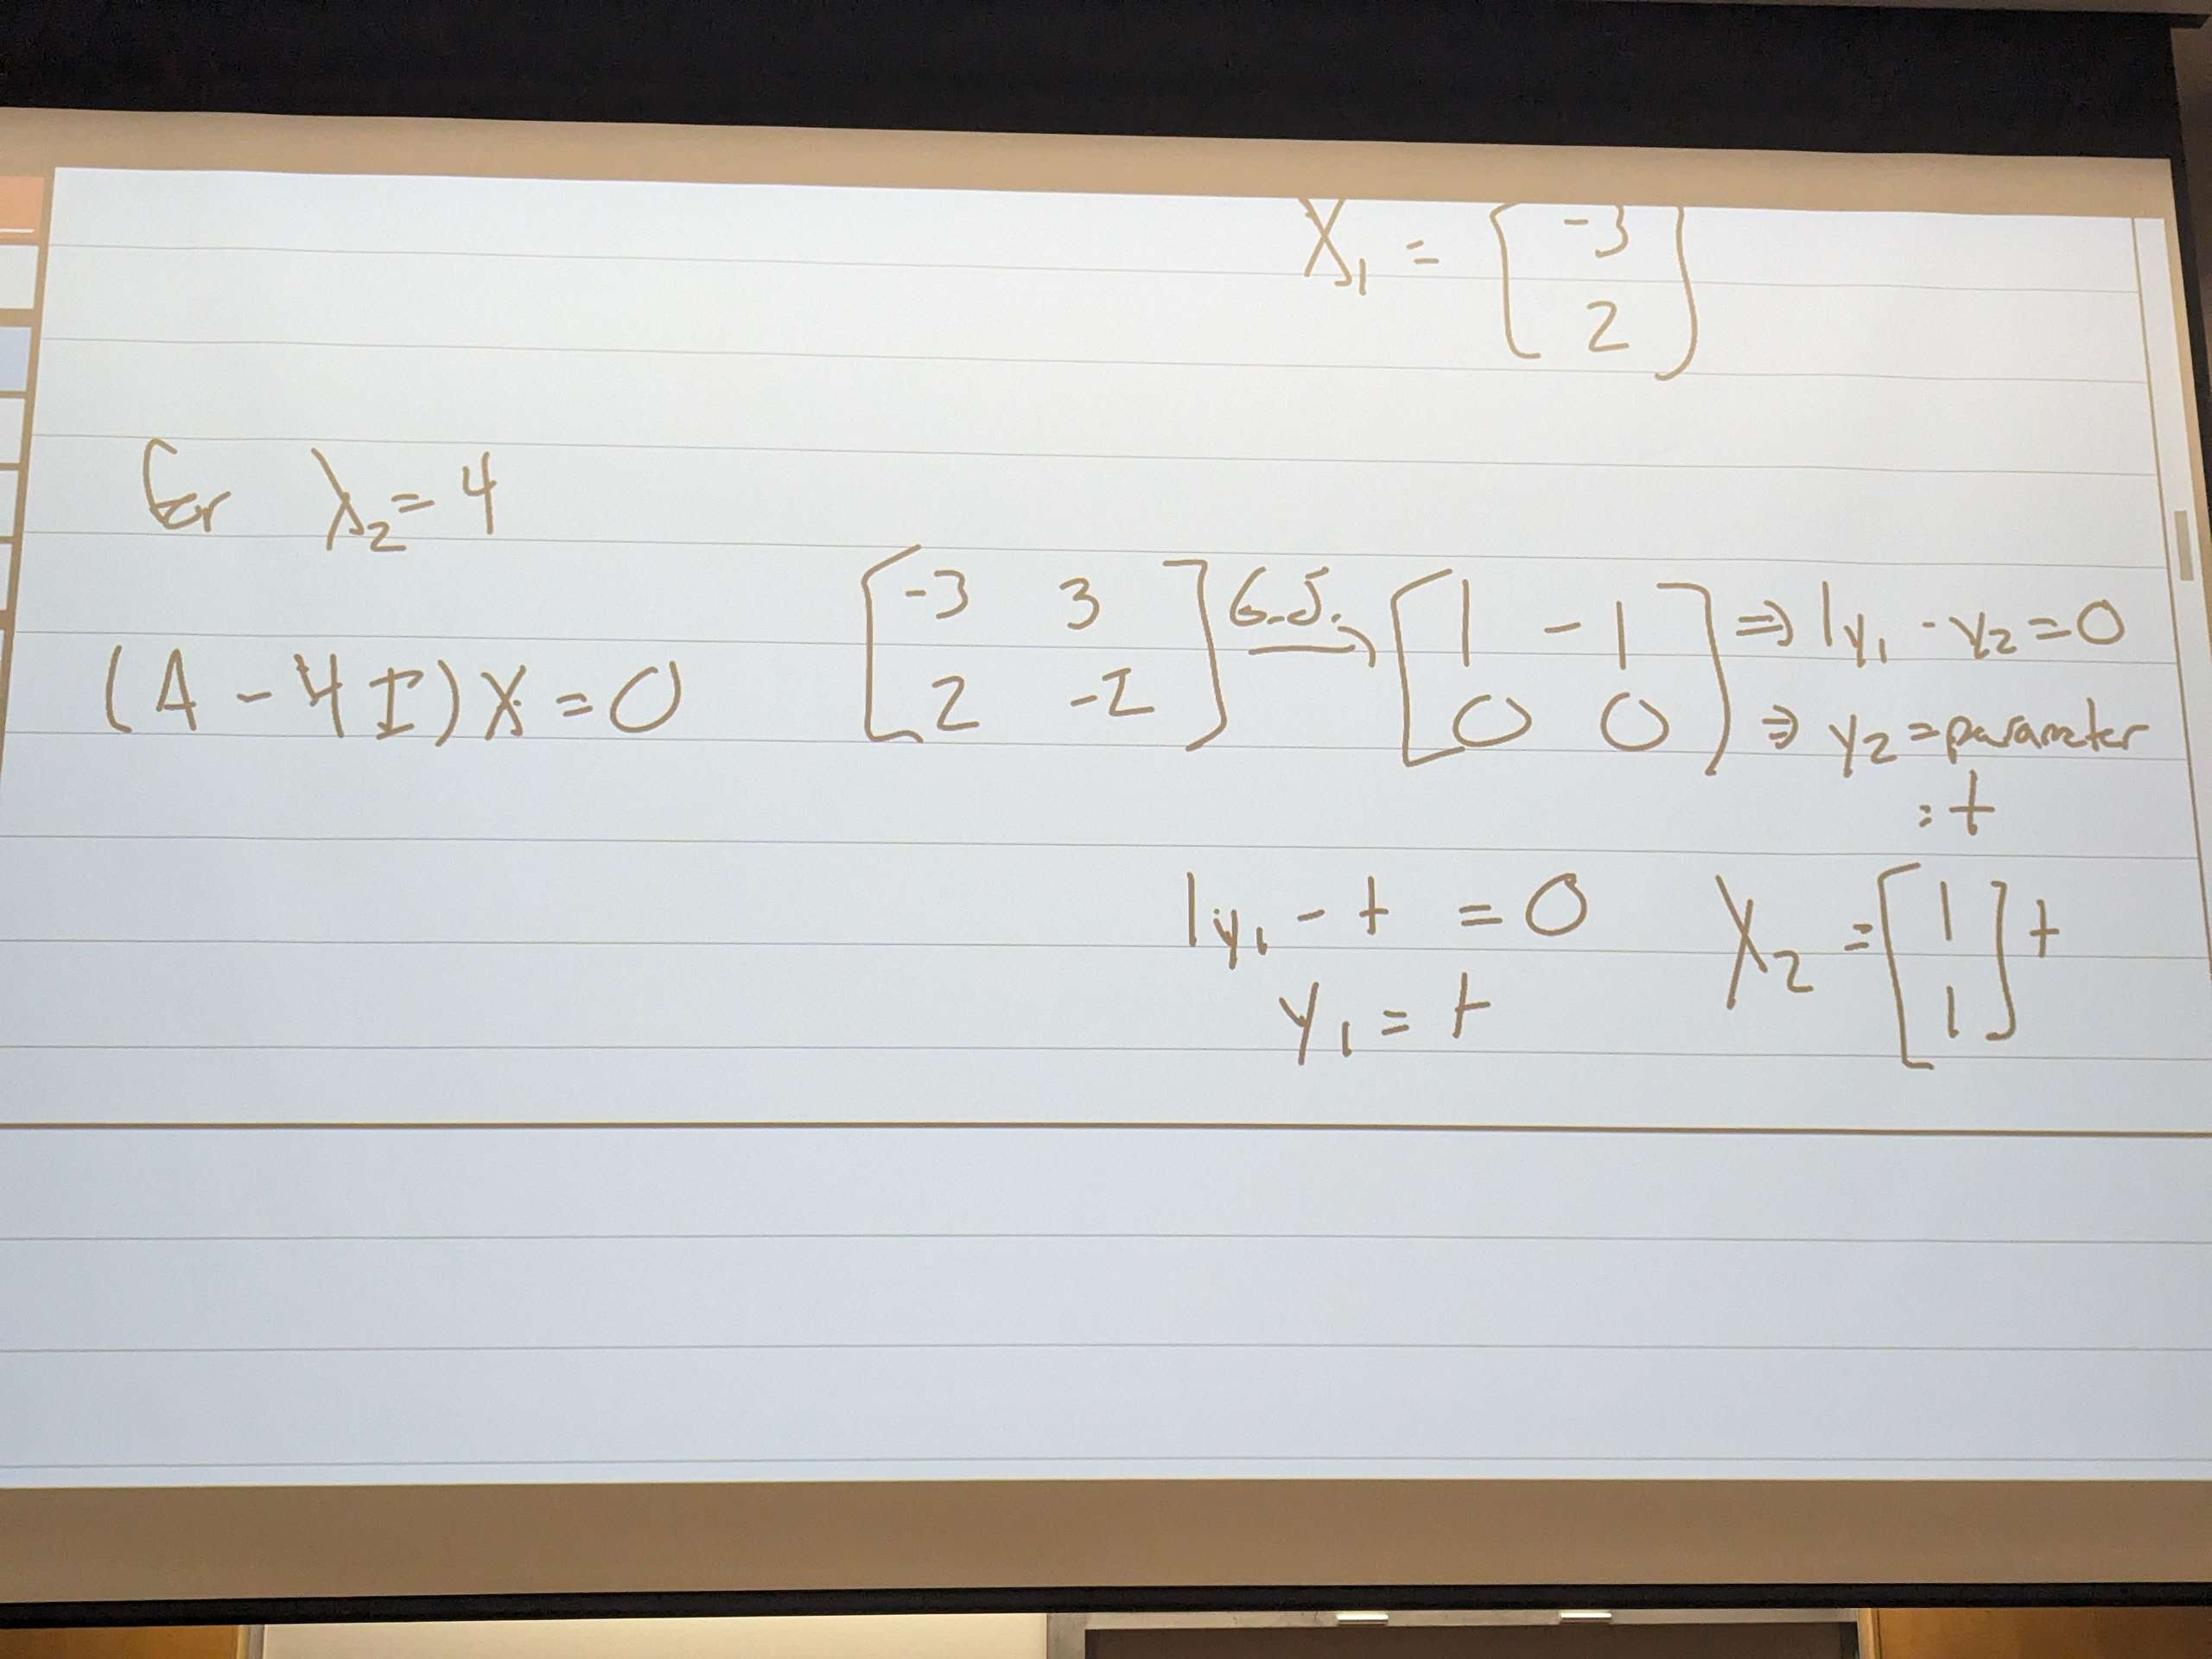 X₁ = [ -3
2 ]
For λ₂ = 4
(A - 4I)X = 0 [ -3 3 ; 2 -2 ] G.J. → [ 1 -1 ; 0 0 ] ⇒ 1y₁ - y₂ = 0
⇒ y₂ = parameter
= t
1y₁ - t = 0 X₂ = [ 1 ; 1 ] t
y₁ = t